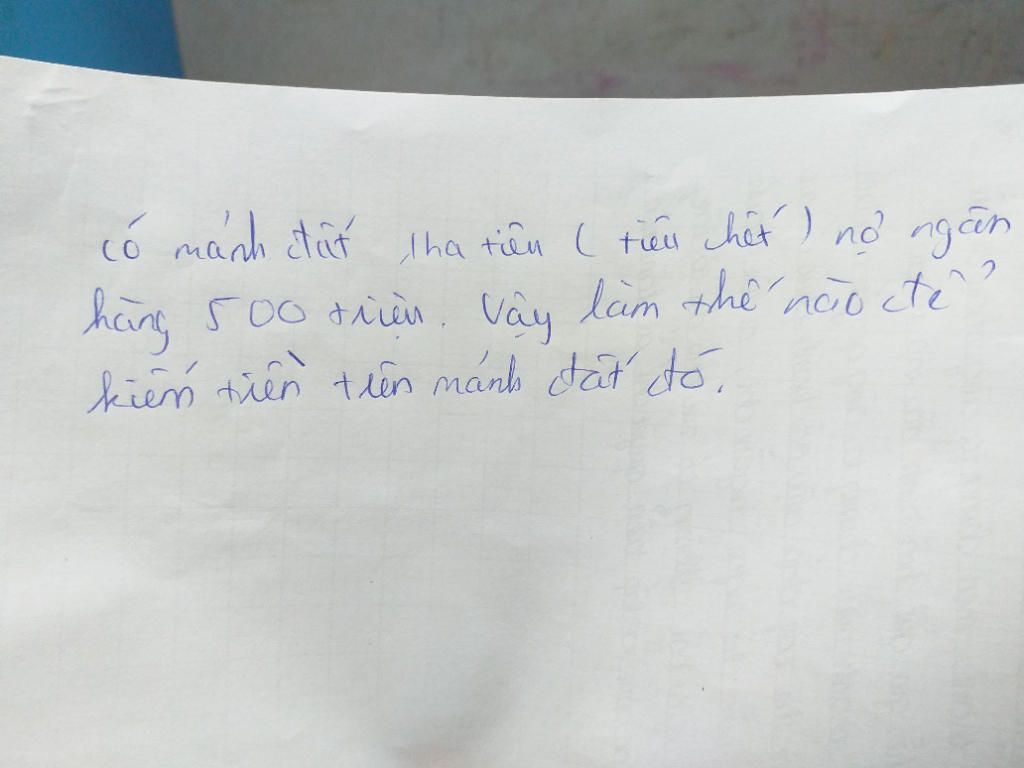 có mảnh đất 1ha tiêu (tiêu chết) nợ ngân
hàng 500 triệu. Vậy làm thế nào để
kiến tiền trên mảnh đất đó.